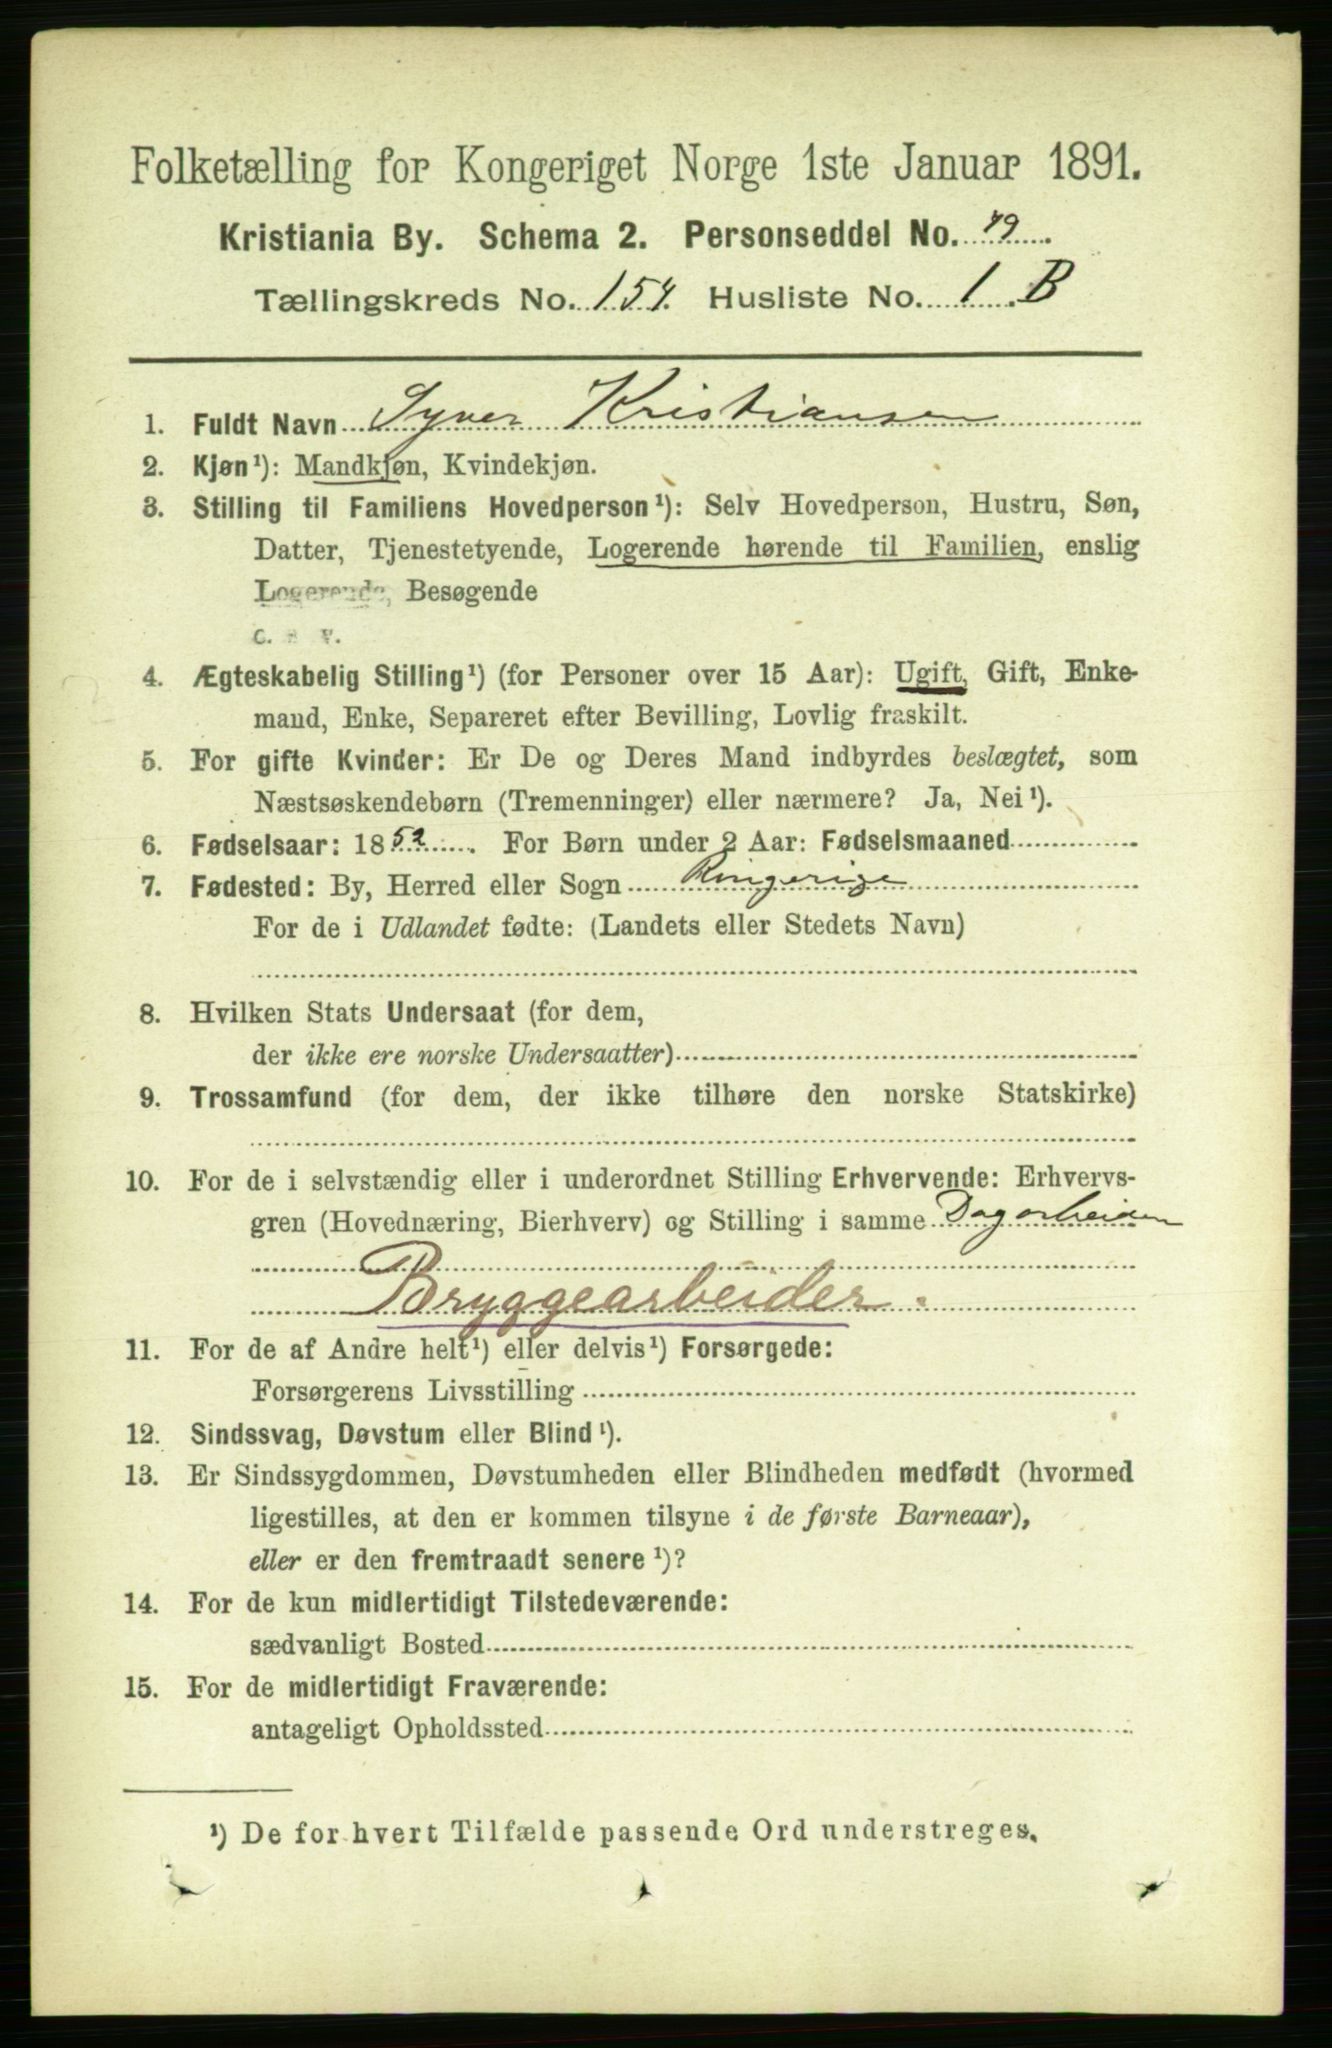 Folketælling for Kongeriget Norge 1ste Januar 1891.
Kristiania By. Schema 2. Personseddel No. 49.
Tællingskreds No. 154. Husliste No. 1. B
1. Fuldt Navn Syver Kristiansen
2. Kjøn¹): Mandkjøn, Kvindekjøn.
3. Stilling til Familiens Hovedperson¹): Selv Hovedperson, Hustru, Søn,
Datter, Tjenestetyende, Logerende hørende til Familien, enslig
Logerende, Besøgende
o. s. v.
4. Ægteskabelig Stilling¹) (for Personer over 15 Aar): Ugift, Gift, Enke-
mand, Enke, Separeret efter Bevilling, Lovlig fraskilt.
5. For gifte Kvinder: Er De og Deres Mand indbyrdes beslægtet, som
Næstsøskendebørn (Tremenninger) eller nærmere? Ja, Nei¹).
6. Fødselsaar: 1852. For Børn under 2 Aar: Fødselsmaaned
7. Fødested: By, Herred eller Sogn Ringerige
For de i Udlandet fødte: (Landets eller Stedets Navn)
8. Hvilken Stats Undersaat (for dem,
der ikke ere norske Undersaatter)
9. Trossamfund (for dem, der ikke tilhøre den norske Statskirke)
10. For de i selvstændig eller i underordnet Stilling Erhvervende: Erhvervs-
gren (Hovednæring, Bierhverv) og Stilling i samme Dagarbeider
Bryggearbeider.
11. For de af Andre helt¹) eller delvis¹) Forsørgede:
Forsørgerens Livsstilling
12. Sindssvag, Døvstum eller Blind¹).
13. Er Sindssygdommen, Døvstumheden eller Blindheden medfødt (hvormed
ligestilles, at den er kommen tilsyne i de første Barneaar),
eller er den fremtraadt senere¹)?
14. For de kun midlertidigt Tilstedeværende:
sædvanligt Bosted
15. For de midlertidigt Fraværende:
antageligt Opholdssted
¹) De for hvert Tilfælde passende Ord understreges.